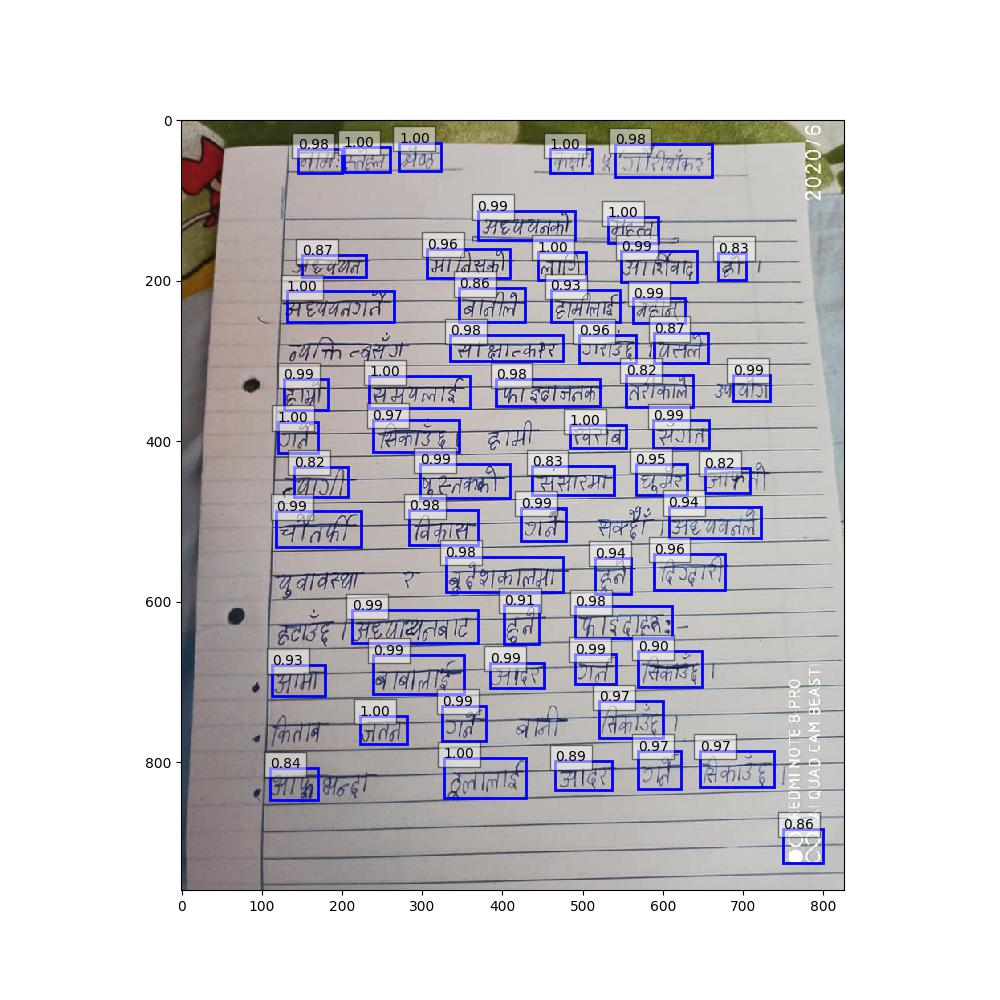 0.98 1.00 1.00 1.00 0.98
नाम: स्नेहल श्रेष्ठ कक्षा ५ गौरीशंकर
0.99 1.00
अध्ययनको महत्व
0.87 0.96 1.00 0.99 0.83
अध्ययन मानिसको लागि आर्शिवाद हो ।
1.00 0.86 0.93 0.99
अध्ययनगर्ने बानीले हामीलाई महान्
0.98 0.96 0.87
व्यक्ति त्वसँग साक्षात्कार गराउँछ । यसले
0.99 1.00 0.98 0.82 0.99
हाम्रो समयलाई फाइदाजनक तरीकाले उपयोग
1.00 0.97 1.00 0.99
गर्न सिकाउँछ । हामी खराब सँगत
0.82 0.99 0.83 0.95 0.82
त्यागी पुस्तकको संसारमा घुमेर आफ्नो
0.99 0.98 0.99 0.94
चौतर्फी विकास गर्न सक्दौँ । अध्ययनले
0.98 0.94 0.96
युवावस्था र बुढेशकालमा हुने दिग्दारी
0.99 0.91 0.98
हटाउँछ । अध्यायनबाट हुने फाइदाहरु:-
0.93 0.99 0.99 0.99 0.90
आमा बाबालाई आदर गर्न सिकाउँछ ।
1.00 0.99 0.97
किताब जतन गर्ने बानी सिकाउँछ ।
0.84 1.00 0.89 0.97 0.97
आफू भन्दा ठूलालाई आदर गर्न सिकाउँछ ।
0.86
REDMI NOTE 8 PRO
AI QUAD CAM BEAST!
2020/6
0 200 400 600 800
0 100 200 300 400 500 600 700 800